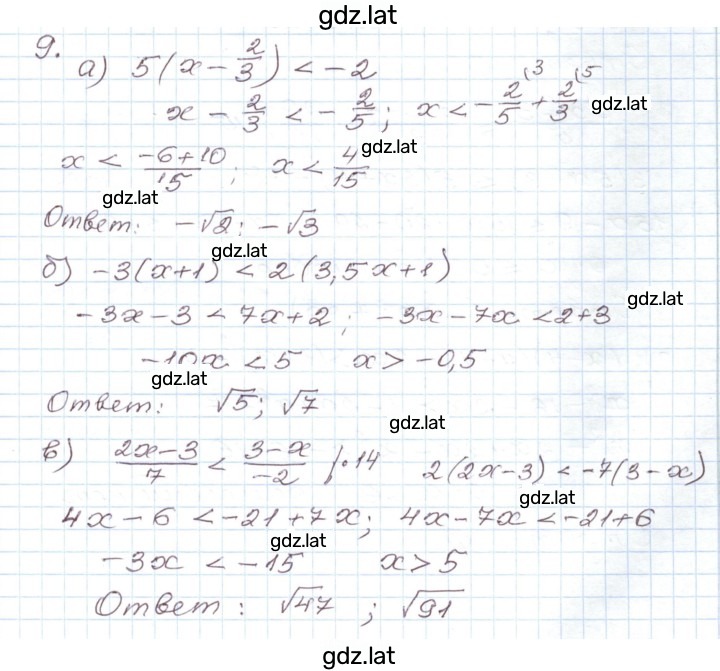 gdz.lat
9.
а) 5(x − 2/3) < −2
x − 2/3 < − 2/5; x < − 2/5 (3 + 2/3 (5 gdz.lat
x < (−6+10)/15; x < 4/15 gdz.lat
gdz.lat
Ответ: −√2; −√3
gdz.lat
б) −3(x+1) < 2(3,5x+1)
gdz.lat
−3x−3 < 7x+2; −3x−7x < 2+3
−10x < 5 x > −0,5
gdz.lat
Ответ: √5; √7
gdz.lat
в) (2x−3)/7 < (3−x)/−2 /·14 2(2x−3) < −7(3−x)
gdz.lat
4x−6 < −21+7x; 4x−7x < −21+6
gdz.lat
−3x < −15 x > 5
Ответ: √47; √91
gdz.lat